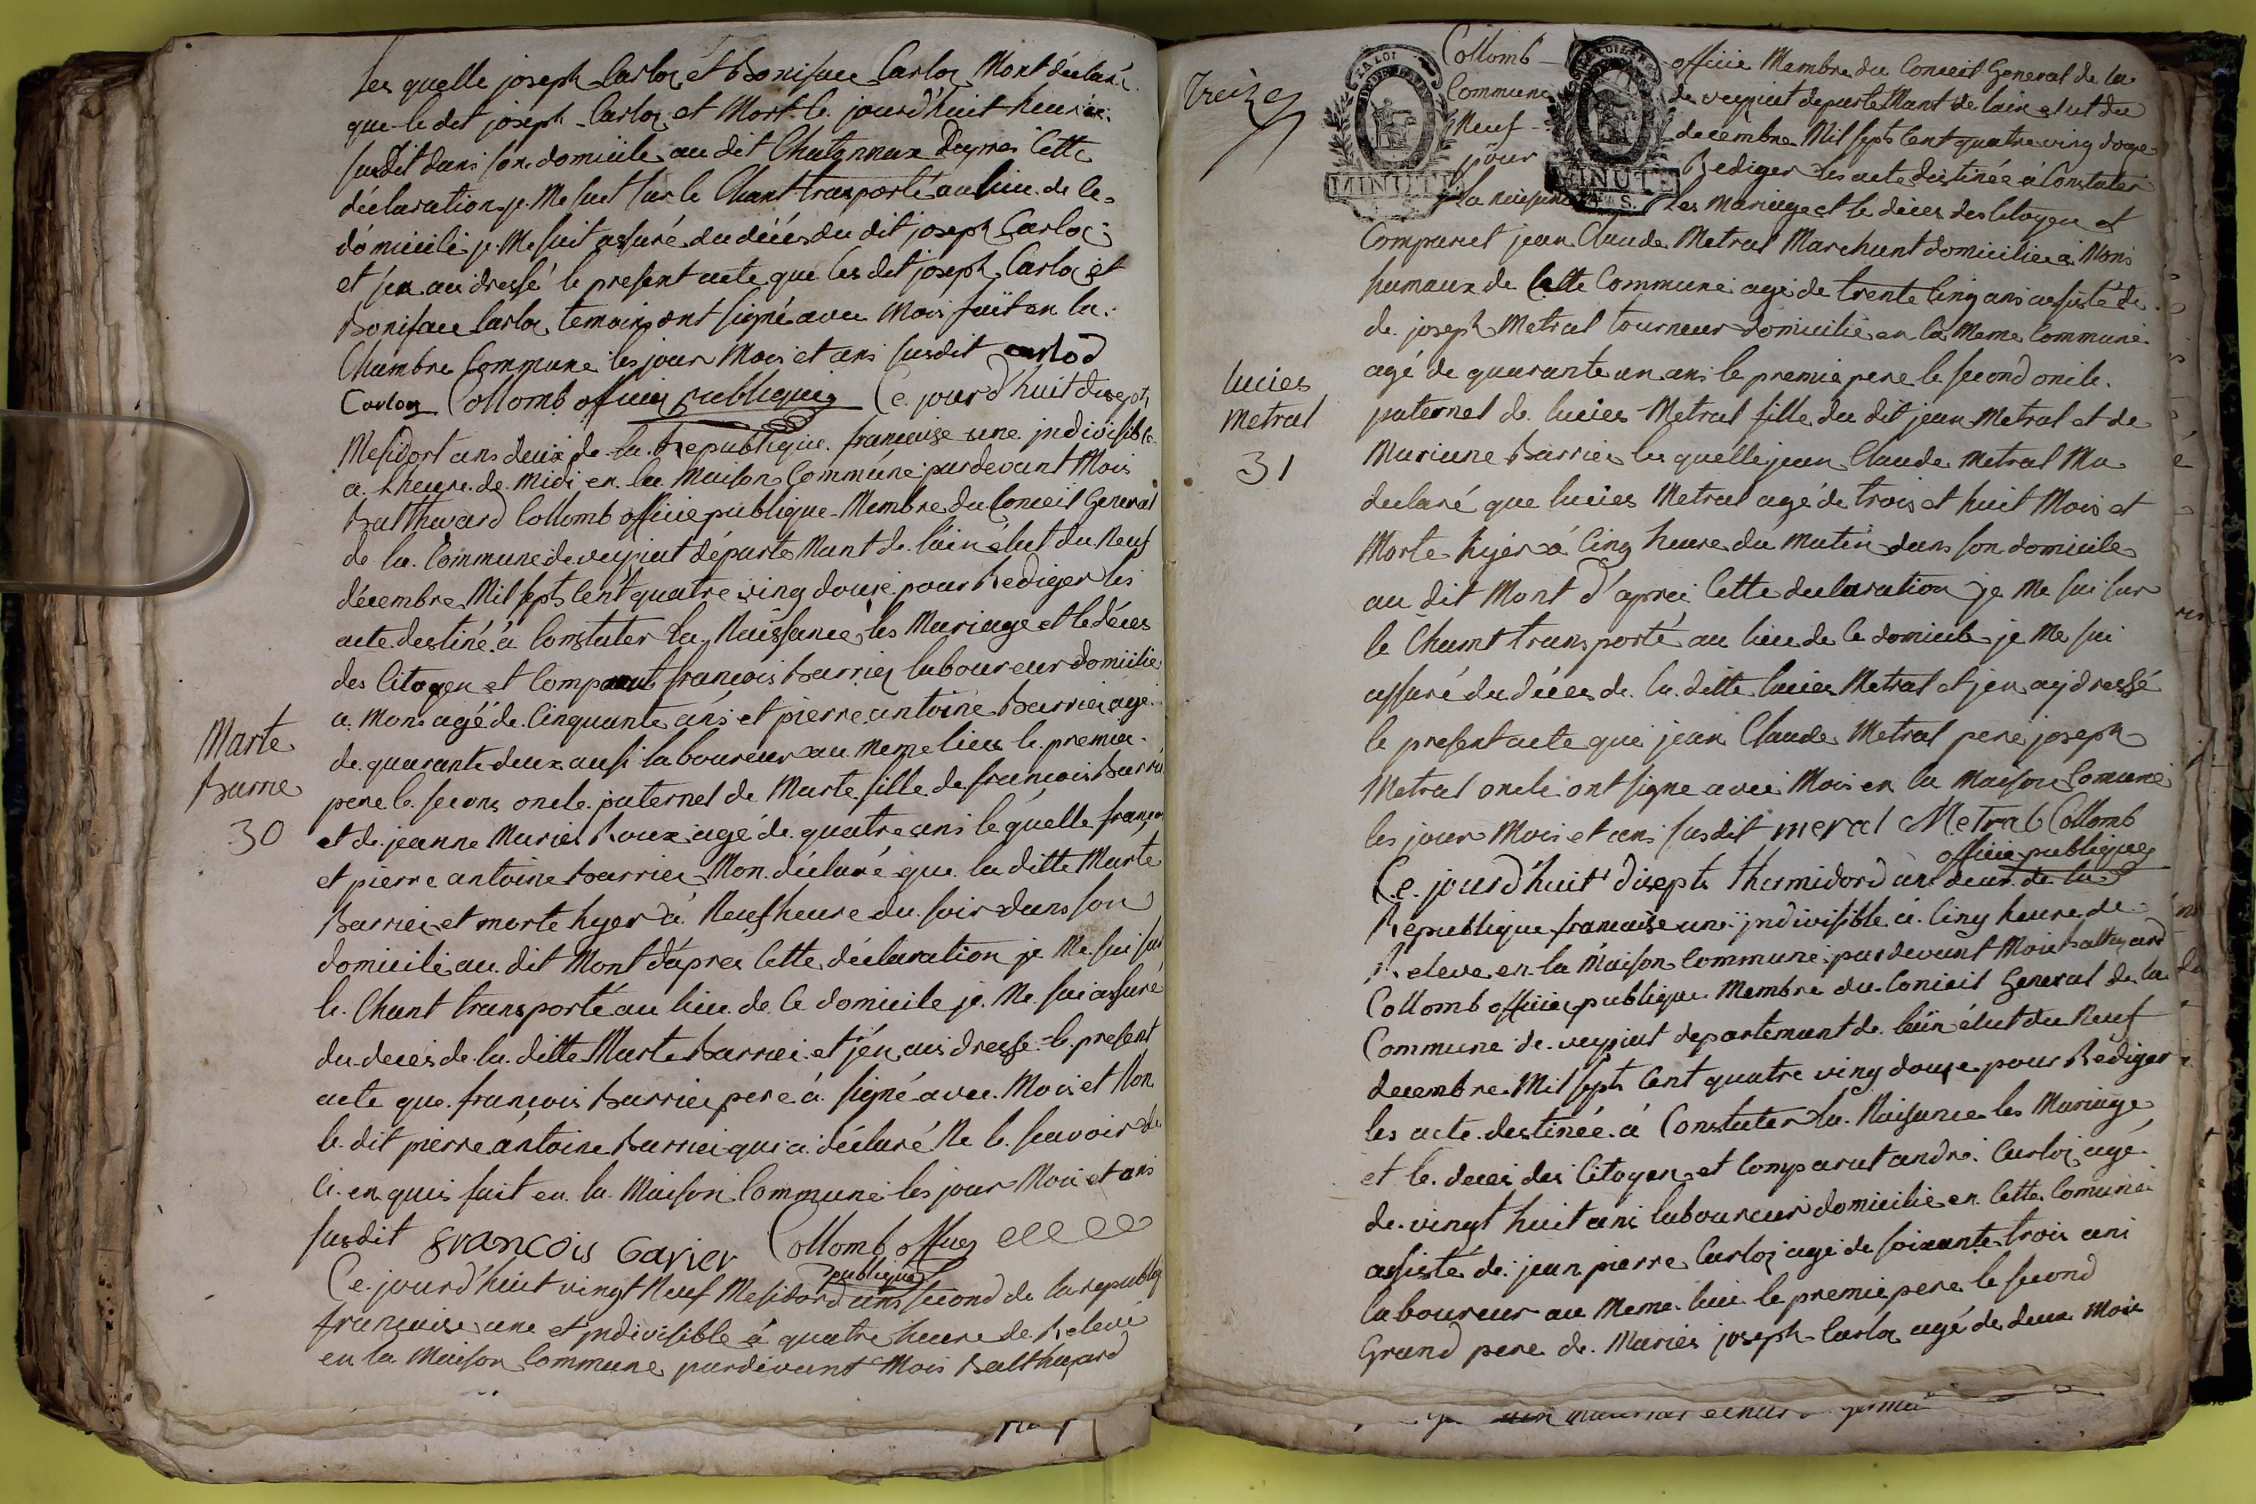 les quelle joseph Carloz et Boniface Carloz Mont déclaré
que le dit joseph Carloz et Mort le jourd'huit heure
susdit dans son domicile au dit Chatonnax Dapres Cette
déclaration je Me suit sur le Chant transporté au lieu de ce
domicile je Me suit assuré du décés du dit joseph Carloz
et j'en ai dressé le present acte que les dit joseph Carloz et
Boniface Carloz temoins ont signé avec Mois fait en la
Chambre Commune les jour Mois et ans susdit carlod
Carloz Collomb officier publique Ce jourd'huit disept
Mesidort ans deux de la Republique francaise une jndivisible
a lheure de Midi en la Maison Commune pardevant Mois
Balthazard Collomb officie publique Membre du Conceil General
de la Commune de veyziat départeMant de lain élut du Neuf
décembre Mil sept Cent quatre ving douze pour Rediger les
acte destiné à Constater la Naissance les Mariage et le déces
des Citoyen et Comparut francois Barrier laboureur domicilie
a Mons agé de Cinquante ans et pierre antoine Barrier agé
de quarante deux ausi laboureur au meme lieu le premier
pere le secons oncle paternel de Marte fille de francois Barrie
et de jeanne Marie Roux agé de quatre ans le quelle francois
et pierre antoine Barrier Mon déclaré que la ditte Marte
Barrier et morte hyer à Neuf heure du soir dans son
domicile au dit Mont d'apres Cette déclaration je Me sui sur
le Chant transporté au lieu de Ce domicile je Me sui assuré
du deces de la ditte Marte Barrier et j'en ais dresse le present
acte que francois Barrier pere à signé avec Mois et Non
le dit pierre antoine Barrier qui a déclaré Ne le scavoir de
Ci en quis fait en la Maison Commune les jour Mois et ans
susdit francois Barier Collomb officer
publique
Ce jourd'huit vingt Neuf Mesidord ans second de la republiq
francaise une et jndivisible à quatre heure de Relevé
en la Maison Commune pardevant Mois Balthazard
Marte
Barrie
30
treize
LA LOI
MINUTE
MINUTE
Collomb officie Membre du Conceil General de la
Commune de veyziat departeMant de lain elut du
Neuf decembre Mil sept Cent quatre ving douze
pour Rediger les acte destinée à Constater
la naisance les mariage et le déces des Citoyen et
Comparut jean Claude Metral Marchant domicilie à Mons
humaux de Cette Commune agé de trente Cinq ans assisté de
de joseph Metral tourneur domicilié en la Meme Commune
agé de quarante un ans le premie pere le second oncle
paternel de lucies Metral fille du dit jean Metral et de
Mariane Barrier les quelle jean Claude Metral Ma
declaré que lucies Metral agé de trois et huit Mois et
Morte hyér à Cinq heure du Matin dans son domicile
au dit Mont d'aprei Cette declaration je Me sui sur
le Chamt transporté au lieu de Ce domicile je Me sui
assuré du déces de la ditte lucies Metral et j'en aij dressé
le present acte que jean Claude Metral pere joseph
Metral oncle ont signe avec Mois en la Maison Comune
les jour Mois et ans susdit meral Metral Collomb
officie publique
Ce jourd'huit disepte thermidord ans deux de la
Republique francaise une jndivisible à Cinq heure de
Releve en la Maison Commune pardevant Moi Balthazard
Collomb officie publique Membre du Conceil General de la
Commune de veyziat departemant de lain élut du Neuf
decembre Mil sept Cent quatre ving douze pour Rediger
les acte destinée à Constater la Naisance les Mariage
et le deces des Citoyen et Comparut andré Carloz agé
de vingt huit ans laboureur domicilie en Cette Comune
assisté de jean pierre Carloz agé de soixante trois ans
laboureur au Meme lieu le premie pere le second
Grand pere de Maries joseph Carloz agé de deux Mois
lucies
metral
31